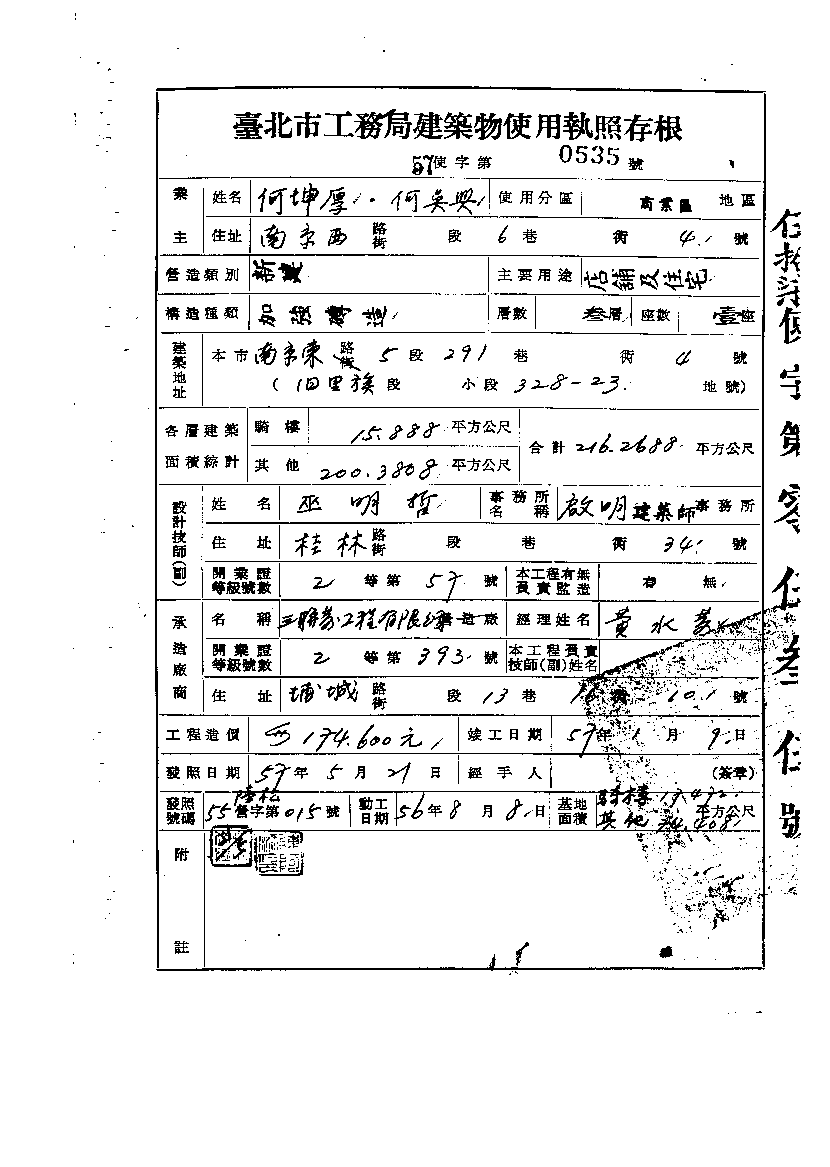 臺北市工務局建築物使用執照存根
57使字第 0535 號
業主 姓名 何坤厚 · 何吳興 使用分區 商業區 地區
住址 南京西 路街 段 6 巷 衖 4 號
營造類別 新建 主要用途 店舖及住宅
構造種類 加強磚造 層數 叁層 座數 壹座
建築地址 本市 南京東 路街 5 段 291 巷 衖 4 號
(旧里族 段 小段 328-23 地號)
各層建築面積綜計 騎樓 15.888 平方公尺 合計 216.2688 平方公尺
其他 200.3808 平方公尺
設計技師(副) 姓名 巫明哲 事務所名稱 啟明建築師事務所
住址 桂林 路街 段 巷 衖 34 號
開業證等級號數 2 等第 57 號 本工程有無負責監造 有 無
承造廠商 名稱 工程有限公司 營造廠 經理姓名 黃水
開業證等級號數 2 等第 393 號 本工程負責技師(副)姓名
住址 埔城 路街 段 13 巷 衖 10.1 號
工程造價 174.600元 竣工日期 57年 1 月 9 日
發照日期 57年 5 月 21 日 經手人 (簽章)
發照號碼 55 營字第 015 號 動工日期 56年 8 月 8 日 基地面積 騎樓 17.472 其他 74.408 平方公尺
附註
伍拾柒使字第零伍叁伍號